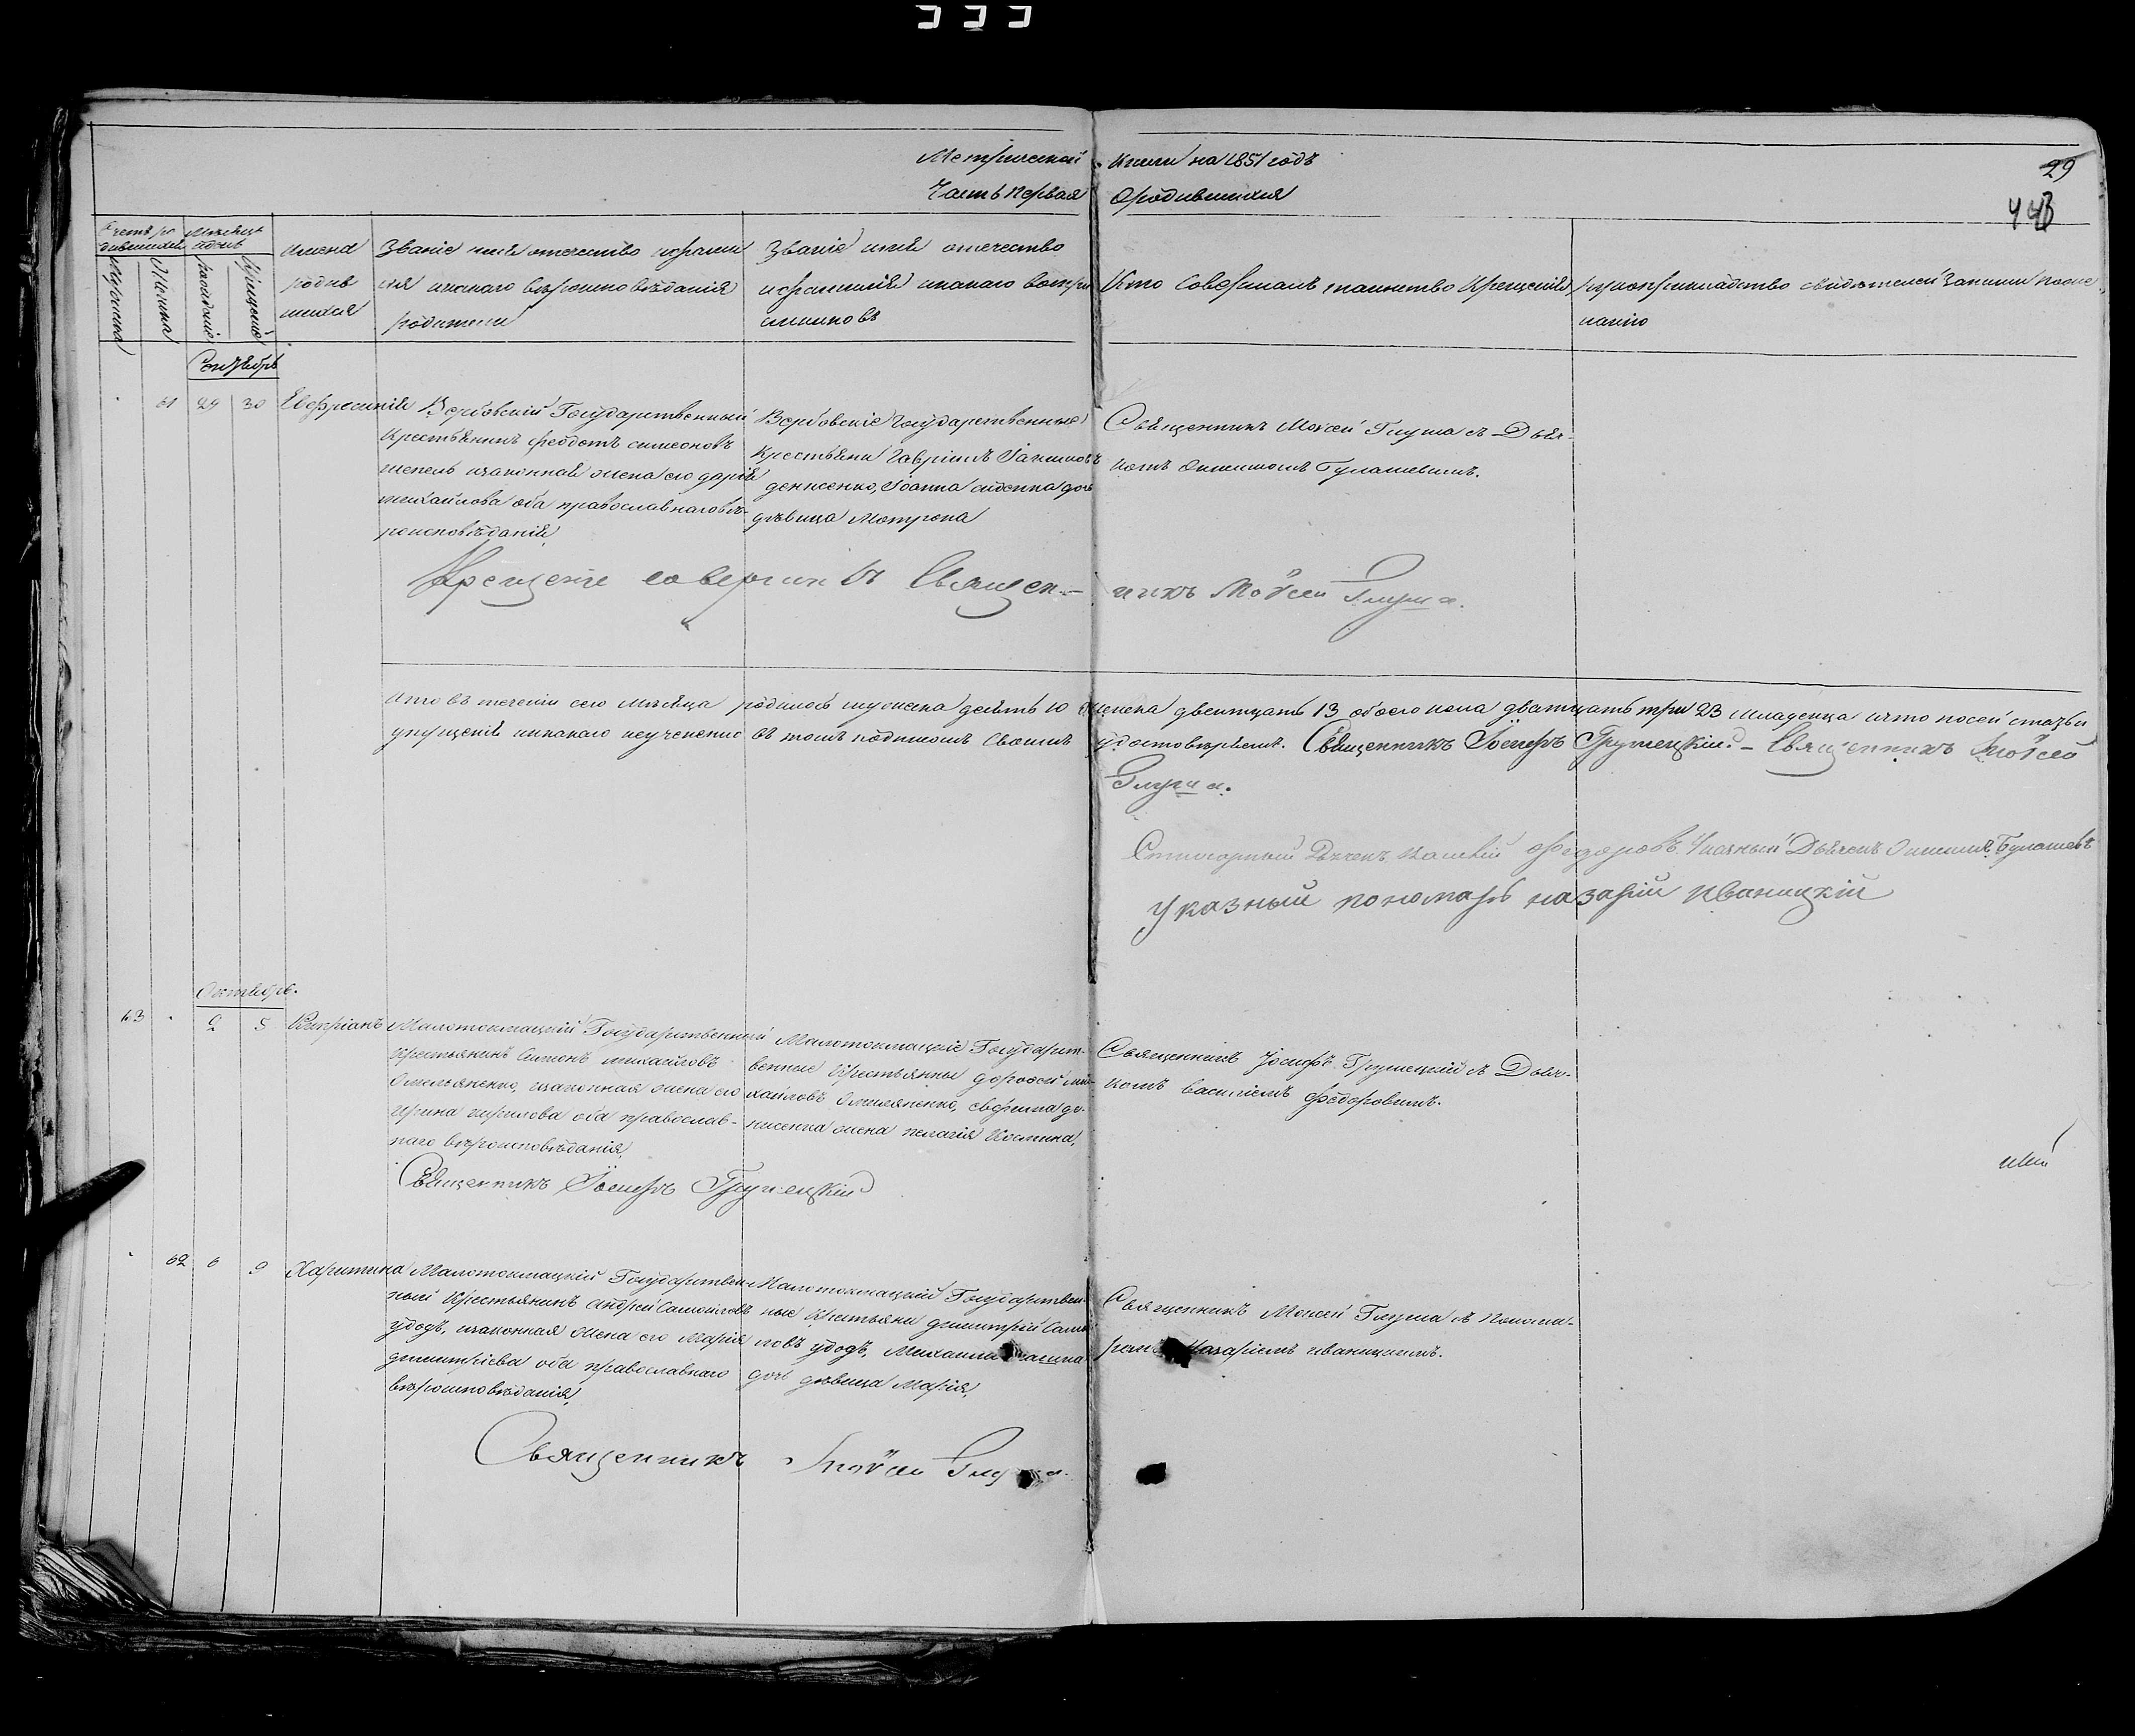 Метрической Книги на 1851 годъ
29
Часть Первая О родившихся
443
Счетъ родившихся
Мужеска
Женска
Месяцъ и день
рожденія
Крещенія
Имена родившихся
Званіе имя отечество и фамилія и какаго вѣроисповѣданія родители
Званіе имя отечество и фамилія и какаго воспріемниковъ
Кто Совершалъ таинство Крещенія
Рукоприкладство свидетелей записи по желанію
Сентябрь
61 29 30 Евфросинія
Вербовскій Государственный
Крестьянинъ Феодотъ Симеоновъ
законная жена его Дарія
Михайлова оба православнаго вѣ-
роисповѣданія
Вербовскіе Государственные
Крестьяни Гавріилъ
Денисенко, Іоанна дочь
дѣвица Мотрона
Священникъ Моѵсей Глуша съ Дьяч-
комъ Онисимомъ Булашевымъ.
Крещеніе совершилъ Священ-
никъ Моѵсей Глуша.
Итого въ теченіи сего мѣсяца родилось мужеска десять 10 женска двентцать 13 обоего пола дватцать три 23 младенца и что по сей статьи
упущенія никакаго неучинено въ томъ подписомъ Своимъ удостовѣряемъ. Священникъ Іосифъ Грушецкій. – Священникъ Моѵсей
Глуша.
Дьячекъ Василій Федоровъ. Указный Дьячекъ Онисимъ Булашевъ
Указный пономарь Назарій Иваницкій
Октябрь.
63 2 5 Кипріанъ
Малотокмацкій Государственный
Крестьянинъ Симонъ Михайловъ
Омельяненко, законная жена его
Ирина Кирилова оба православ-
наго вѣроисповѣданія,
Малотокмацкіе Государст-
венные Крестьянны Дорофей Ми-
хайловъ Омельяненко, Евфима Де-
нисенка жена Пелагія Космина,
Священникъ Іосифъ Грушецкій съ Дьяч-
комъ Василіемъ Федоровымъ.
Священникъ Іосифъ Грушецкій
62 6 9 Харитина
Малотокмацкій Государствен-
ный Крестьянинъ Андрей Самойловъ
Удодъ, законная жена его Марія
Димитріева оба православнаго
вѣроисповѣданія,
Малотокмацкіи Государствен-
ные Крестьяни Димитрій Самой-
ловъ Удодъ, Михаила
дочь дѣвица Марія,
Священникъ Моѵсей Глуша съ Понома-
ремъ Назаріемъ Иваницкимъ.
Священникъ Моѵсей Глуша.